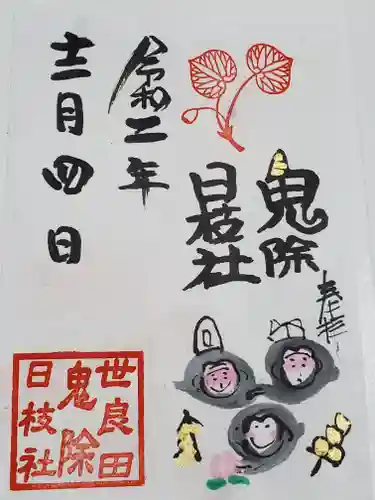 奉拝
鬼除
日枝社
令和二年
十二月四日
世良田
鬼除
日枝社